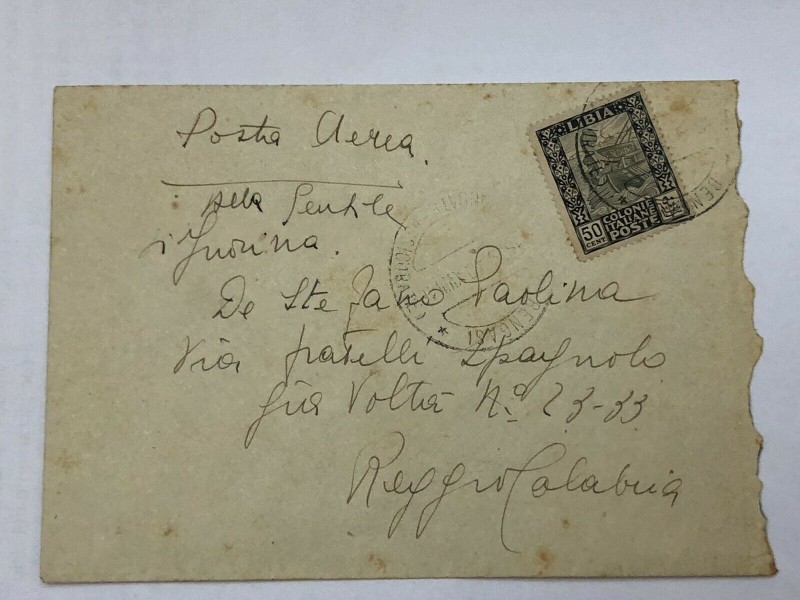 Posta Aerea.
Gentile
De Stefano Paolina
Via fratelli Spagnolo
già Volta Nº 23-33
Reggio Calabria
LIBIA
50
CENT
COLONIE
ITALIANE
POSTE
BENGASI
BEN